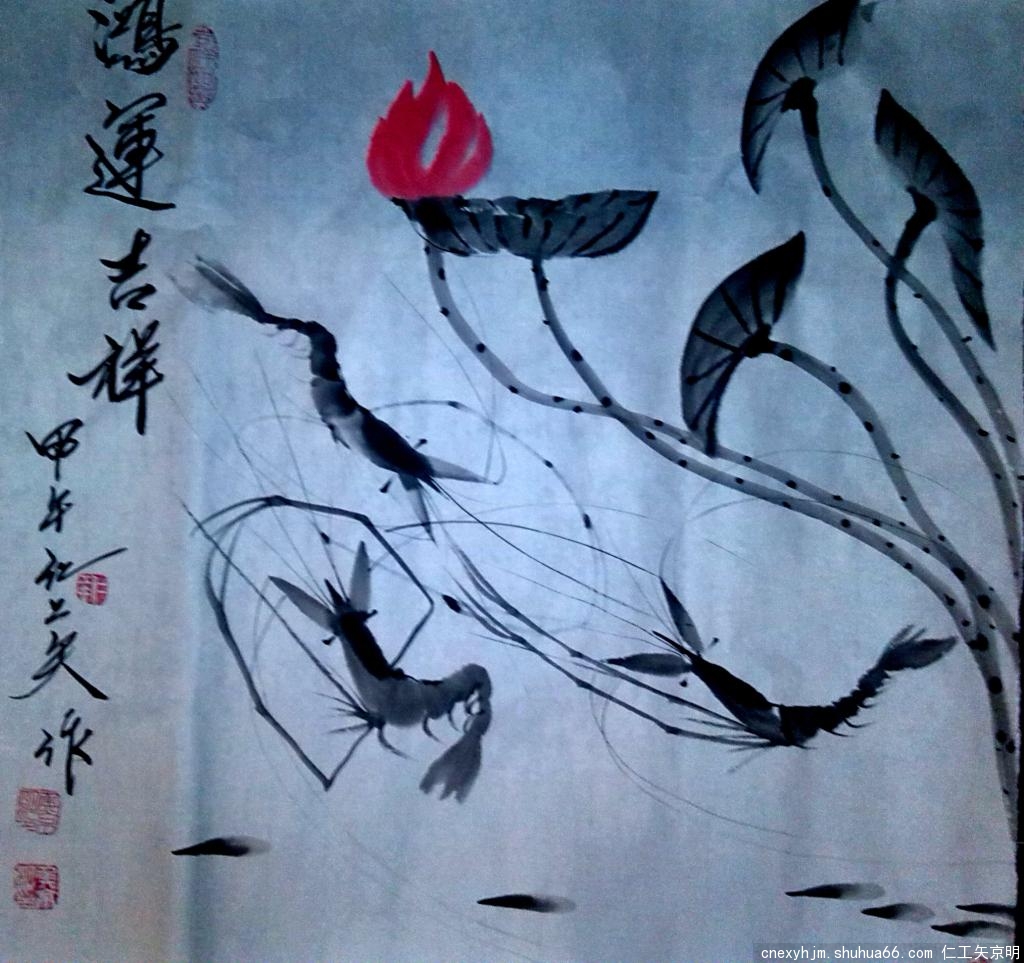 鴻運吉祥
甲午仁工矢作
cnexyhjm.shuhua66.com 仁工矢京明